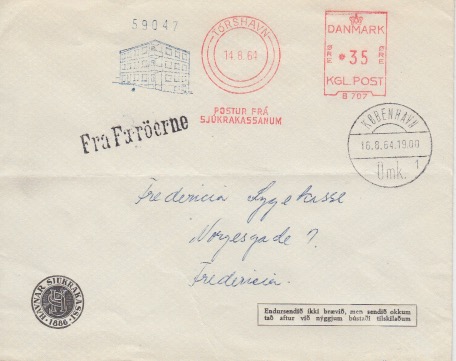 59047
TÓRSHAVN
14.8.64
DANMARK
ØRE 35 ØRE
KGL. POST
B 707
POSTUR FRÁ
SJÚKRAKASSANUM
Fra Færöerne
KØBENHAVN
16.8.64.19.00
Omk. 1
Fredericia Sygekasse
Norgesgade 7.
Fredericia.
HAVNAR SJÚKRAKASSI
·1886·
Endursendið ikki brævið, men sendið okkum
tað aftur við nýggjum bústaði tilskilaðum